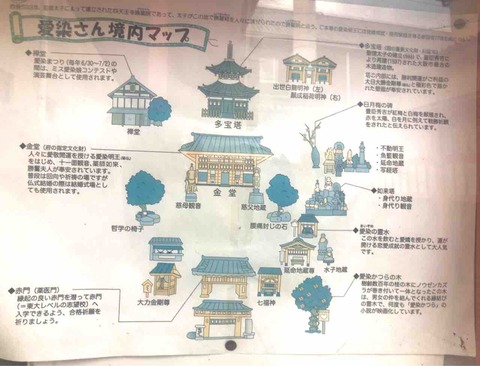 愛染さん境内マップ
◆禅堂
愛染まつり(毎年6/30～7/2)の
際には、ミス愛染娘コンテストや
演芸舞台として
使用されます。
禅堂
多宝塔
出世白龍明神(左)
願成稲荷明神(右)
◆日月梅の碑
豊臣秀吉が紅梅と白梅を
赤を太陽、白を月に例えて戦勝祈願
をされたと伝えられます。
・不動明王
・魚藍観音
・延命地蔵
・写経塔
◆金堂(府の指定文化財)
人々に愛敬開運を授ける愛染明王
をはじめ、十一面観音、薬師如来、
勝鬘夫人が奉安されています。
普段は回向や祈祷の場ですが
仏式結婚の際は結婚式場とし
ても使用されます。
金堂
慈母観音
慈父地蔵
◆如来塔
・身代り地蔵
・身代り観音
哲学の椅子
腰痛封じの石
◆愛染の霊水
この水を飲むと愛嬌を授かり、運が
開ける恋愛成就の霊水として大人気
です。
延命地蔵尊
水子地蔵
大力金剛尊
七福神
◆赤門(薬医門)
縁起の良い赤門を潜って赤門
(=東大レベルの志望校)へ
入学できるよう、合格祈願を
祈りましょう。
◆愛染かつらの木
樹齢数百年の桂の木にノウゼンカズ
ラが巻き付いて一体となったこの木
は、男女の仲を睦んでくれる縁結び
の霊木で、何度も「愛染かつら」の
小説が映画化しています。